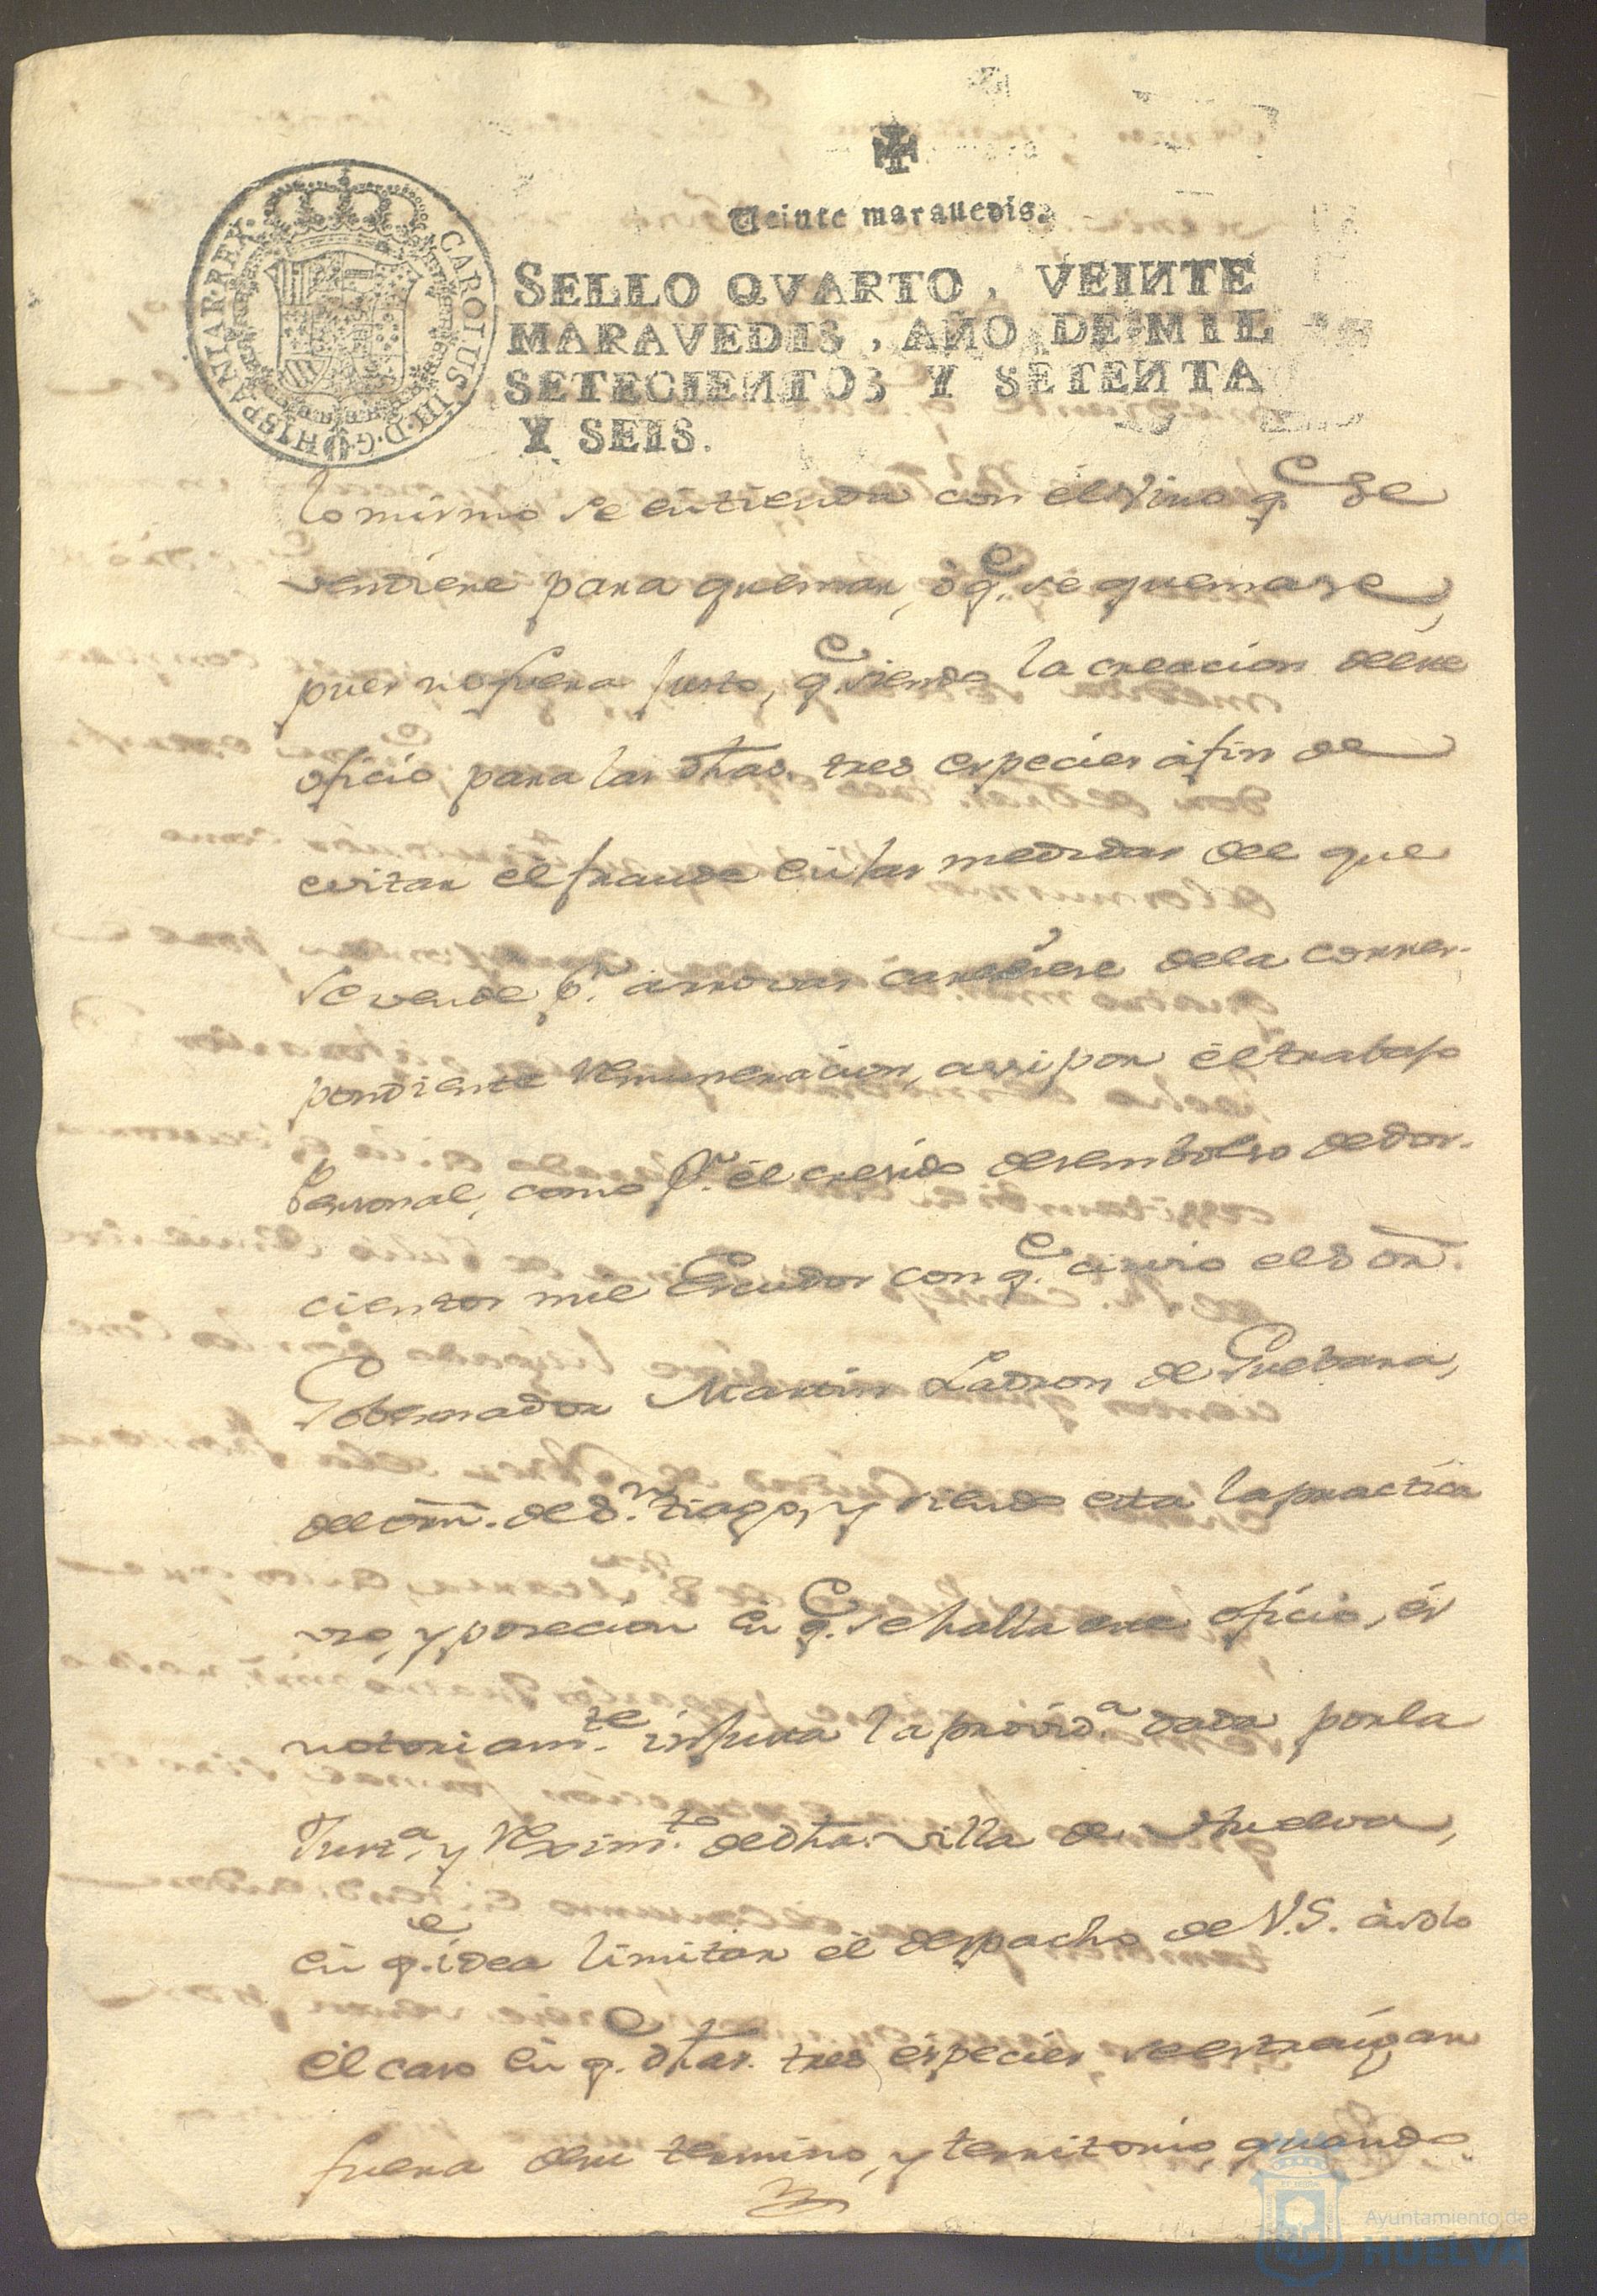 Veinte marauedis.
SELLO QVARTO, VEINTE
MARAVEDIS, AÑO DE MIL
SETECIENTOS Y SETENTA
Y SEIS.
CAROLUS III D.G. HISPANIAR REX
lo mismo se entienda con el vino q.e se
vendiere para quemar, ò q.e se quemase,
pues no fuera justo, q.e siendo la creacion de ese
oficio para las dhas. tres especies à fin de
evitar el fraude en las medidas del que
se vende p.r arrovas careciese de la corres-
pondiente remuneracion, assi por el trabajo
personal, como p.r el crecido desembolso de dos-
cientos mil Escudos con q.e sirvio el S.or
Gobernador Martin Ladron de Guebara,
del orn. de S.n tiago, y siendo esta la practica
uso, y posecion en q.e se halla ese oficio, es
notoriam.te injusta la provid.a dada por la
Just.a y Reximi.to de dha. villa de Huelva,
en q.e idea limitar el despacho de V.S. à solo
el caso en q.e dhas. tres especies se extraigan
fuera de su termino, y territorio, quando
Ayuntamiento de
HUELVA